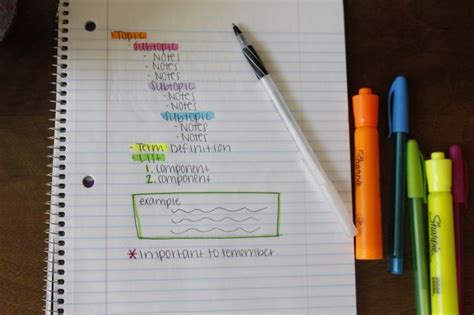 Topic
- Subtopic
- Notes
- Notes
- Notes
- Subtopic
- Notes
- Notes
- Subtopic
- Notes
- Notes
- Term Definition
- List
1. component
2. component
example
* important to remember
Sharpie
Sharpie